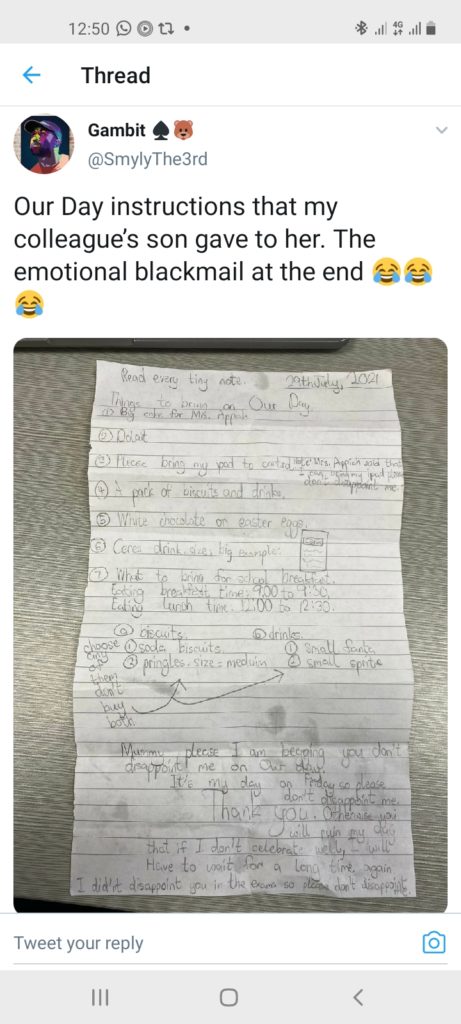 12:50
4G
Thread
Gambit
@SmylyThe3rd
Our Day instructions that my
colleague's son gave to her. The
emotional blackmail at the end
Read every tiny note. 29th July, 2021
Things to bring on Our Day
① Big cake for Mrs. Appiah
②
③ Please bring my ipad to Note: Mrs. Appiah said that
I can bring my ipad please
don't disappoint me.
④ A pack of biscuits and drinks.
⑤ White chocolate or easter eggs.
⑥ Ceres drink size, big example:
⑦ What to bring for school breakfast.
Eating breakfast time: 9:00 to 9:30,
Eating lunch time. 12:00 to 12:30.
ⓐ biscuits. ⓑ drinks.
choose ① soda biscuits ① small fanta
any ② pringles. size = medium ② small sprite
of
them
don't
buy
both.
Mummy please I am begging you don't
disappoint me on Our day.
It's my day on Friday so please
don't disappoint me.
Thank you. Otherwise you
will ruin my day
that if I don't celebrate well, I will
Have to wait for a long time again
I didn't disappoint you in the exams so please don't disappoint.
Tweet your reply